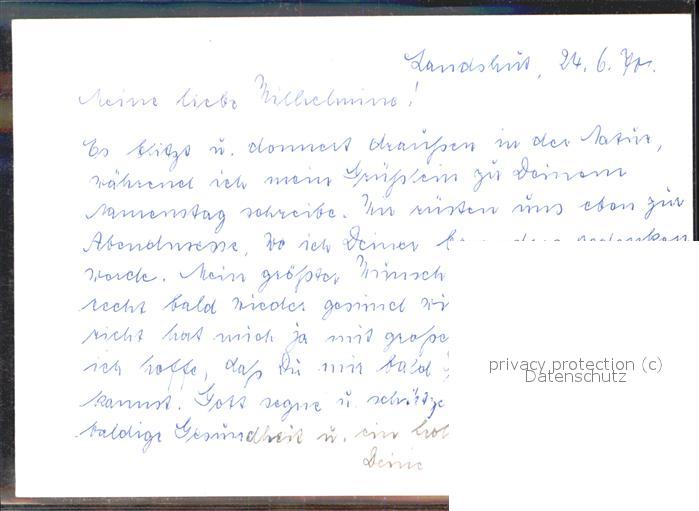 Landshut, 24. 6.
Meine liebe Wilhelmine!
Es blitzt u. donnert draußen in der Natur,
während ich mein Grüßlein zu Deinem
Namenstag schreibe. Wir rüsten uns eben zur
Abendmesse, wo ich Deiner gedenken
werde. Mein größter Wunsch
recht bald wieder gesund
richt hat mich ja mit große
ich hoffe, daß Du mir bald
kannst. Gott segne u. schütze
baldige Gesundheit u. ein
Deine
privacy protection (c)
Datenschutz